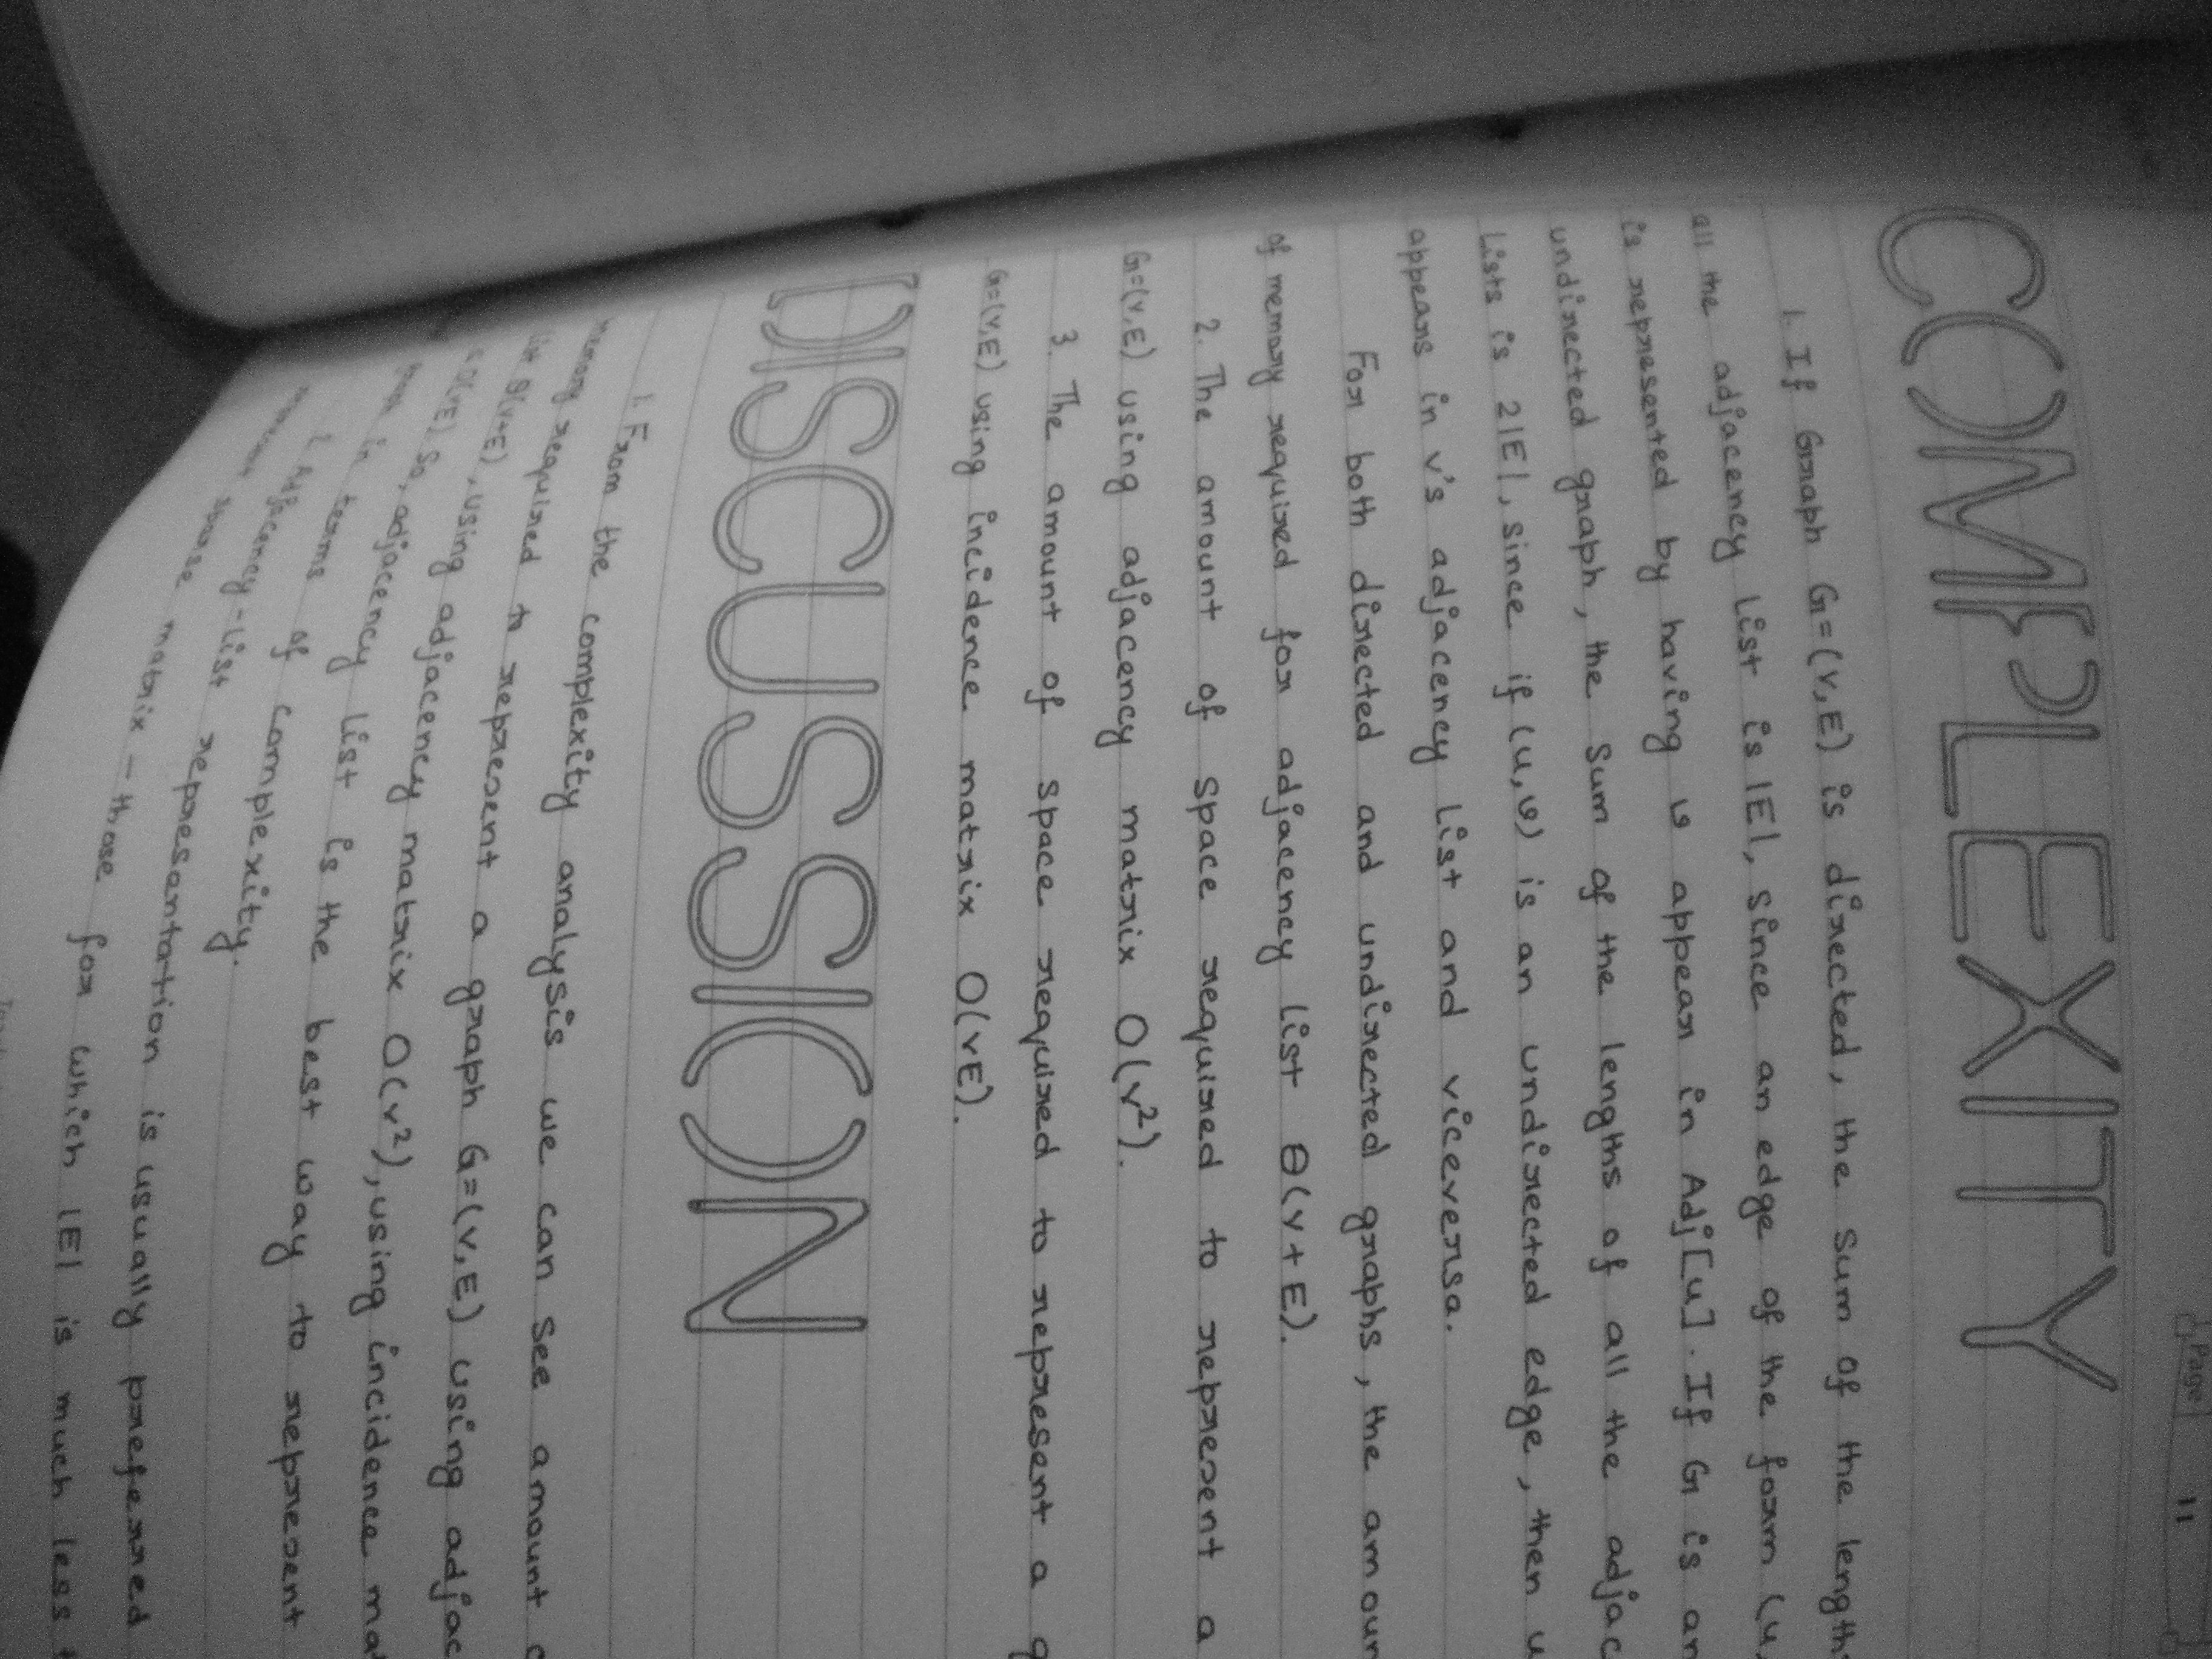 Page 11
COMPLEXITY
1. If Graph G=(V,E) is directed, the sum of the length
all the adjacency list is |E|, since an edge of the form (u,
is represented by having v appear in Adj[u]. If G is an
undirected graph, the sum of the lengths of all the adjac
Lists is 2|E|, since if (u,v) is an undirected edge, then u
appears in v's adjacency list and viceversa.
For both directed and undirected graphs, the amoun
of memory required for adjacency list θ(V+E).
2. The amount of space required to represent a
G=(V,E) using adjacency matrix O(V²).
3. The amount of space required to represent a g
G=(V,E) using incidence matrix O(VE).
DISCUSSION
1. From the complexity analysis we can see amount o
memory required to represent a graph G=(V,E) using adjac
list θ(V+E), using adjacency matrix O(V²), using incidence mat
O(VE). So, adjacency list is the best way to represent
in terms of complexity.
2. Adjacency-list representation is usually preferred
sparse matrix - those for which |E| is much less t